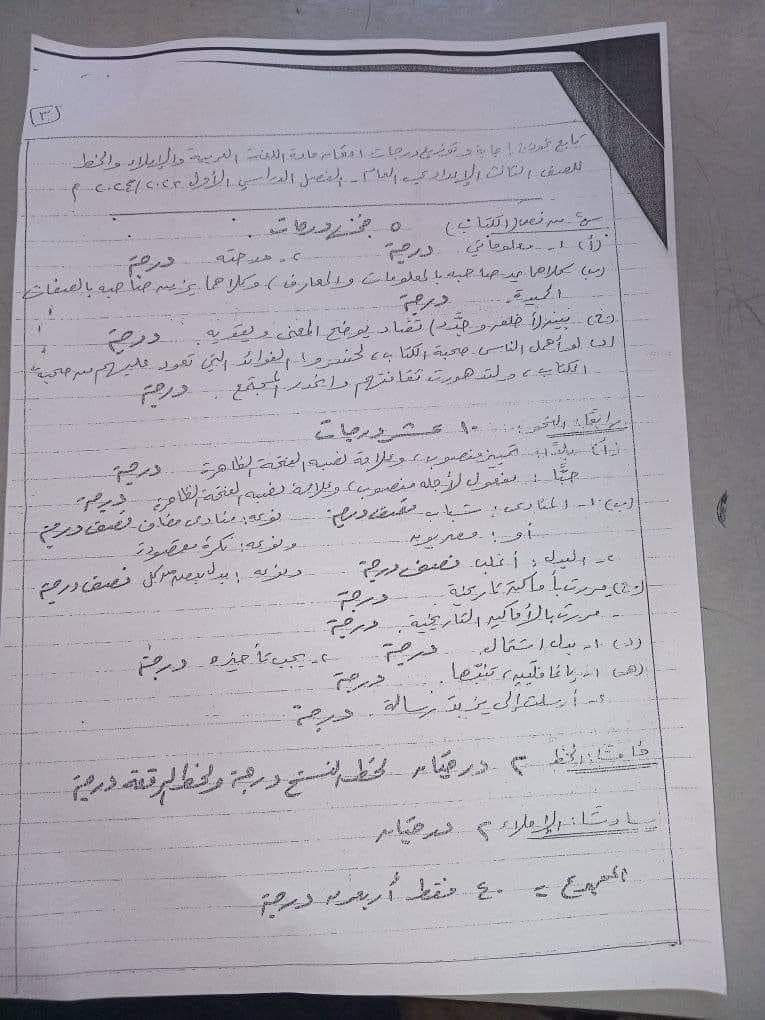 ٣
تابع نموذج إجابة وتوزيع درجات امتحان مادة اللغة العربية والإملاء والخط
للصف الثالث الإعدادي العام - الفصل الدراسي الأول ٢٠٢٣/٢٠٢٤ م
(الكتاب) ٥ خمس درجات
(أ) ١- معلوماتي درجة ٢- مدحته درجة
(ب) كلاهما يمد صاحبه بالمعلومات والمعارف، وكلاهما يزين صاحبه بالصفات
الحميدة. درجة
(ج) بين (أخلق وجدّد) تضاد يوضح المعنى ويقويه. درجة
(د) لو أهمل الناس صحبة الكتاب، لخسروا الفوائد التي تعود عليهم من صحبة
الكتاب، ولتدهورت ثقافتهم وانحدر المجتمع. درجة
رابعًا: النحو: ١٠ عشر درجات
(أ) تمييز منصوب، وعلامة نصبه الفتحة الظاهرة درجة
حبًّا: مفعول لأجله منصوب، وعلامة نصبه الفتحة الظاهرة درجة
(ب) ١- المنادى: شباب نصف درجة نوعه: منادى مضاف نصف درجة
أو: مصريون ونوعه: نكرة مقصودة
٢- البدل: أغلب نصف درجة ونوعه: بدل بعض من كل نصف درجة
(ج) مررت بأماكن تاريخية درجة
- مررت بالأماكن التاريخية. درجة
(د) ١- بدل اشتمال. درجة ٢- يجب تأخيره درجة
(هـ) ١- يا غافلين، تنبّهوا. درجة
٢- أرسلت إلى يزيد رسالة. درجة
خامسًا: الخط ٢ درجتان لخط النسخ درجة ولخط الرقعة درجة
سادسًا: الإملاء ٢ درجتان
المجموع = ٤٠ فقط أربعون درجة